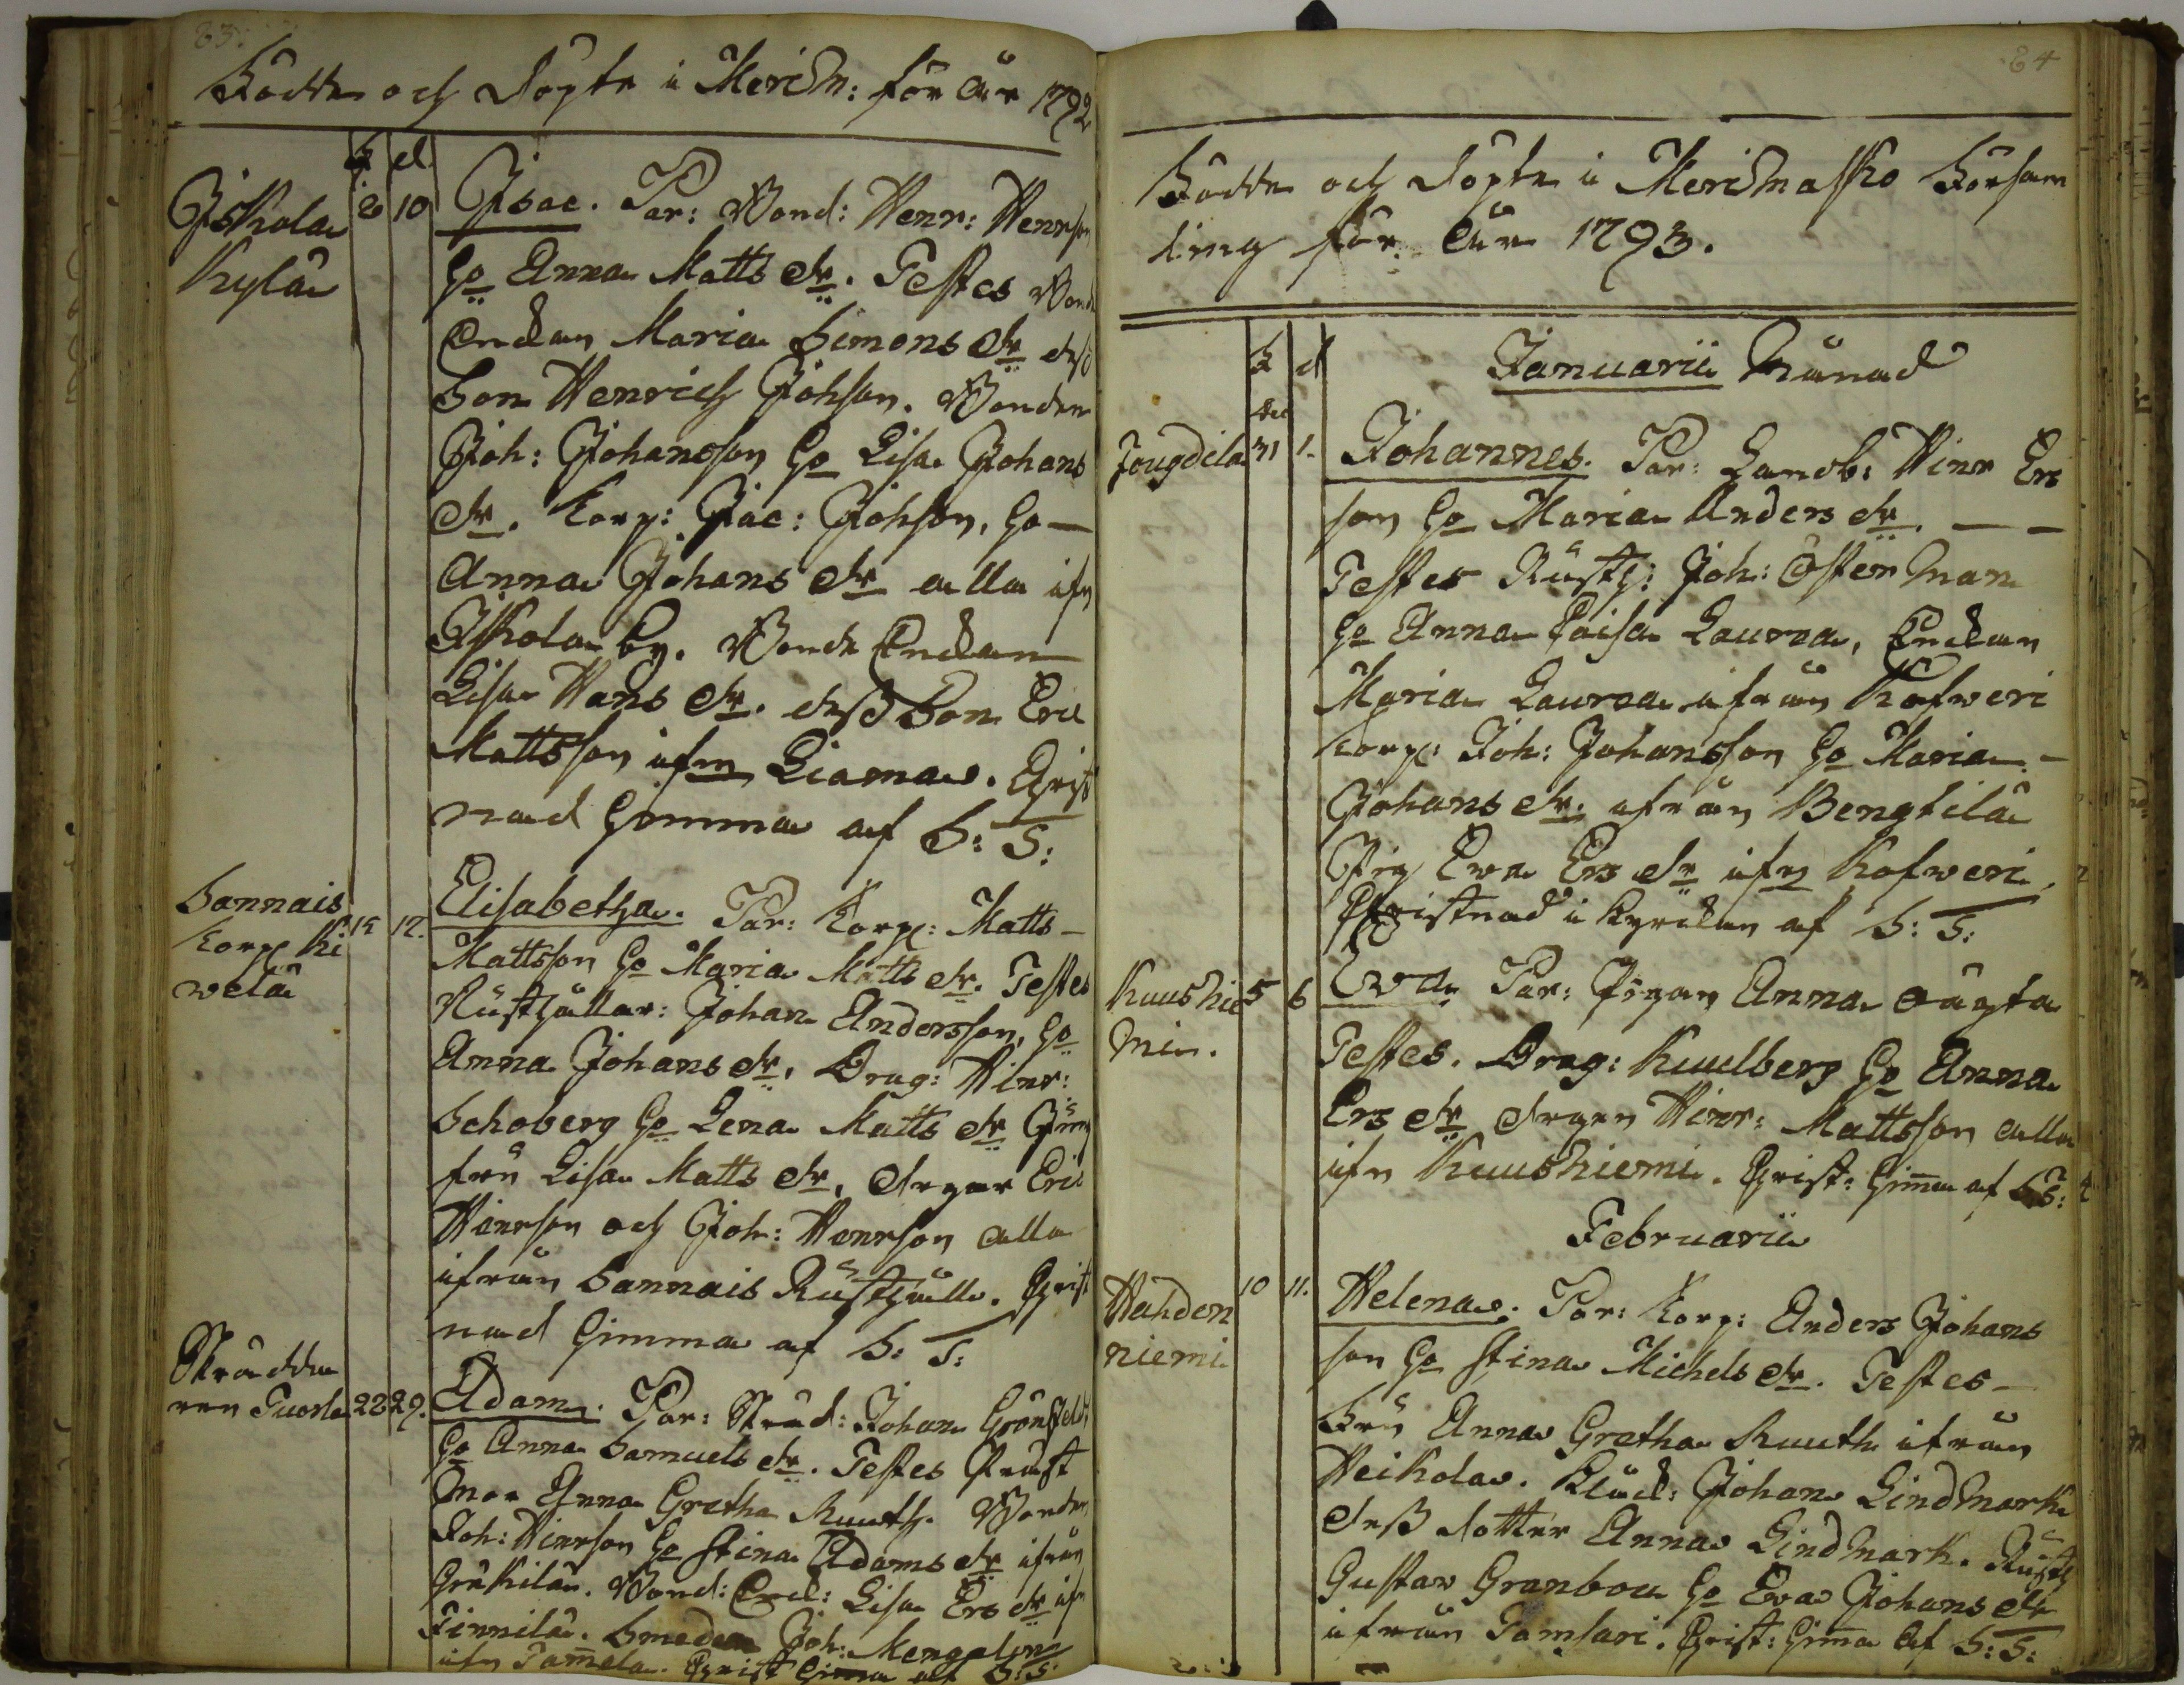 83.
Födde och döpte i Merim: för år 1792
f d.
Iskola 20 10 Isac. Par: Bond: Henr: Henrson
Kylä
ho Anna Matts dr. Testes Bond
Enckan Maria Simons dr dess
Son Henrich Johson. Bonden
Joh: Johansson ho Lisa Johans
dr. Korp: Jac: Johson, ho —
Anna Johans dr alla ifn
Iskola by. Bonde Enckan
Lisa Hans dr. dess Son Eric
Mattsson ifrn Liama. Christ
nad hemma af S: S:
Sannais Korp Ki welä 15 17. Elisabetha. Par: Korp: Matts —
Mattsson ho Maria Matts dr. Testes
Rusthållar: Johan Andersson, ho
Anna Johans dr. Drag: Hinr:
Schoberg ho Lena Matts dr Jung
fru Lisa Matts dr, Drgar Eric
Hinrson och Joh: Henrson alla
ifrån Sannais Rusthålle. Christ
nad hemma af S: S:
Skrädda
ren Tuorla 28 29. Adam. Par: Skräd: Johan Grönfelt
ho Anna Samuels dr. Testes Prust
Mor Anna Gretha Ruuth. Bonden
Joh: Hinrson ho Stina Adams dr ifrån
Gräkilä. Bond: Enck: Lisa Ers dr ifn
Finnilä. Smeden Joh: Mengelin
ifn Tamela. Christ hemma af S: S:
84
Födde och döpte i Merimasko Försam
ling för År 1793.
f d Januarii Månad
Dec
Jougdila 31 1. Johannes. Par: Landb: Hinr Ers
son ho Maria Anders dr. — —
Testes Rusth: Joh: Österman
ho Anna Caisa Laurea, Enckan
Maria Laurea ifrån Kofweri
Korp: Joh: Johansson ho Maria —
Johans dr. ifrån Bengtilä
Pig Ewa Ers dr ifrn Kofweri
Christnad i Kyrckan af S: S:
Kuushie 5 6 Eva Par: Pigan Anna oägta
min.
Testes. Drag: Kuulberg ho Anna
Ers dr drgen Hinr: Mattsson alla
ifn Kuushiemi. Christ: hemma af S: S:
Februarii
Wahden 10 11. Helena. Par: Korp: Anders Johans
niemi
son ho Stina Michels dr. Testes —
Fru Anna Gretha Ruuth ifrån
Heikola. Klock: Johan Lindmark
dess dotter Anna Lindmark. Rusth
Gustav Granbou ho Eva Johans dr
ifrån Tamsari. Christ: hemma af S: S: